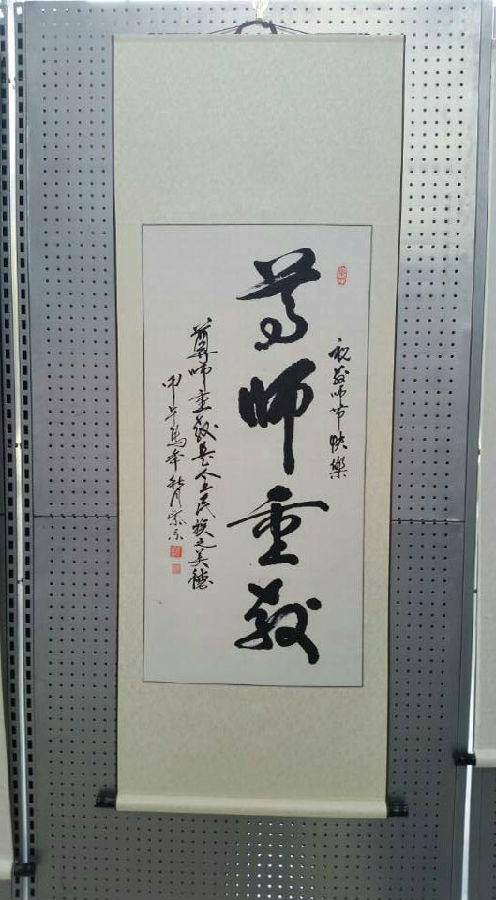 祝教师节快樂
尊师重教
尊師重教是人類民族之美德
甲午馬年秋月